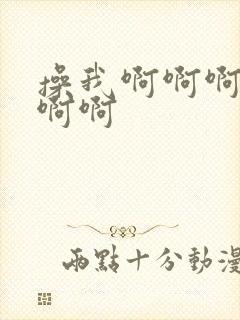 操我啊啊啊
啊啊
兩點十分動漫